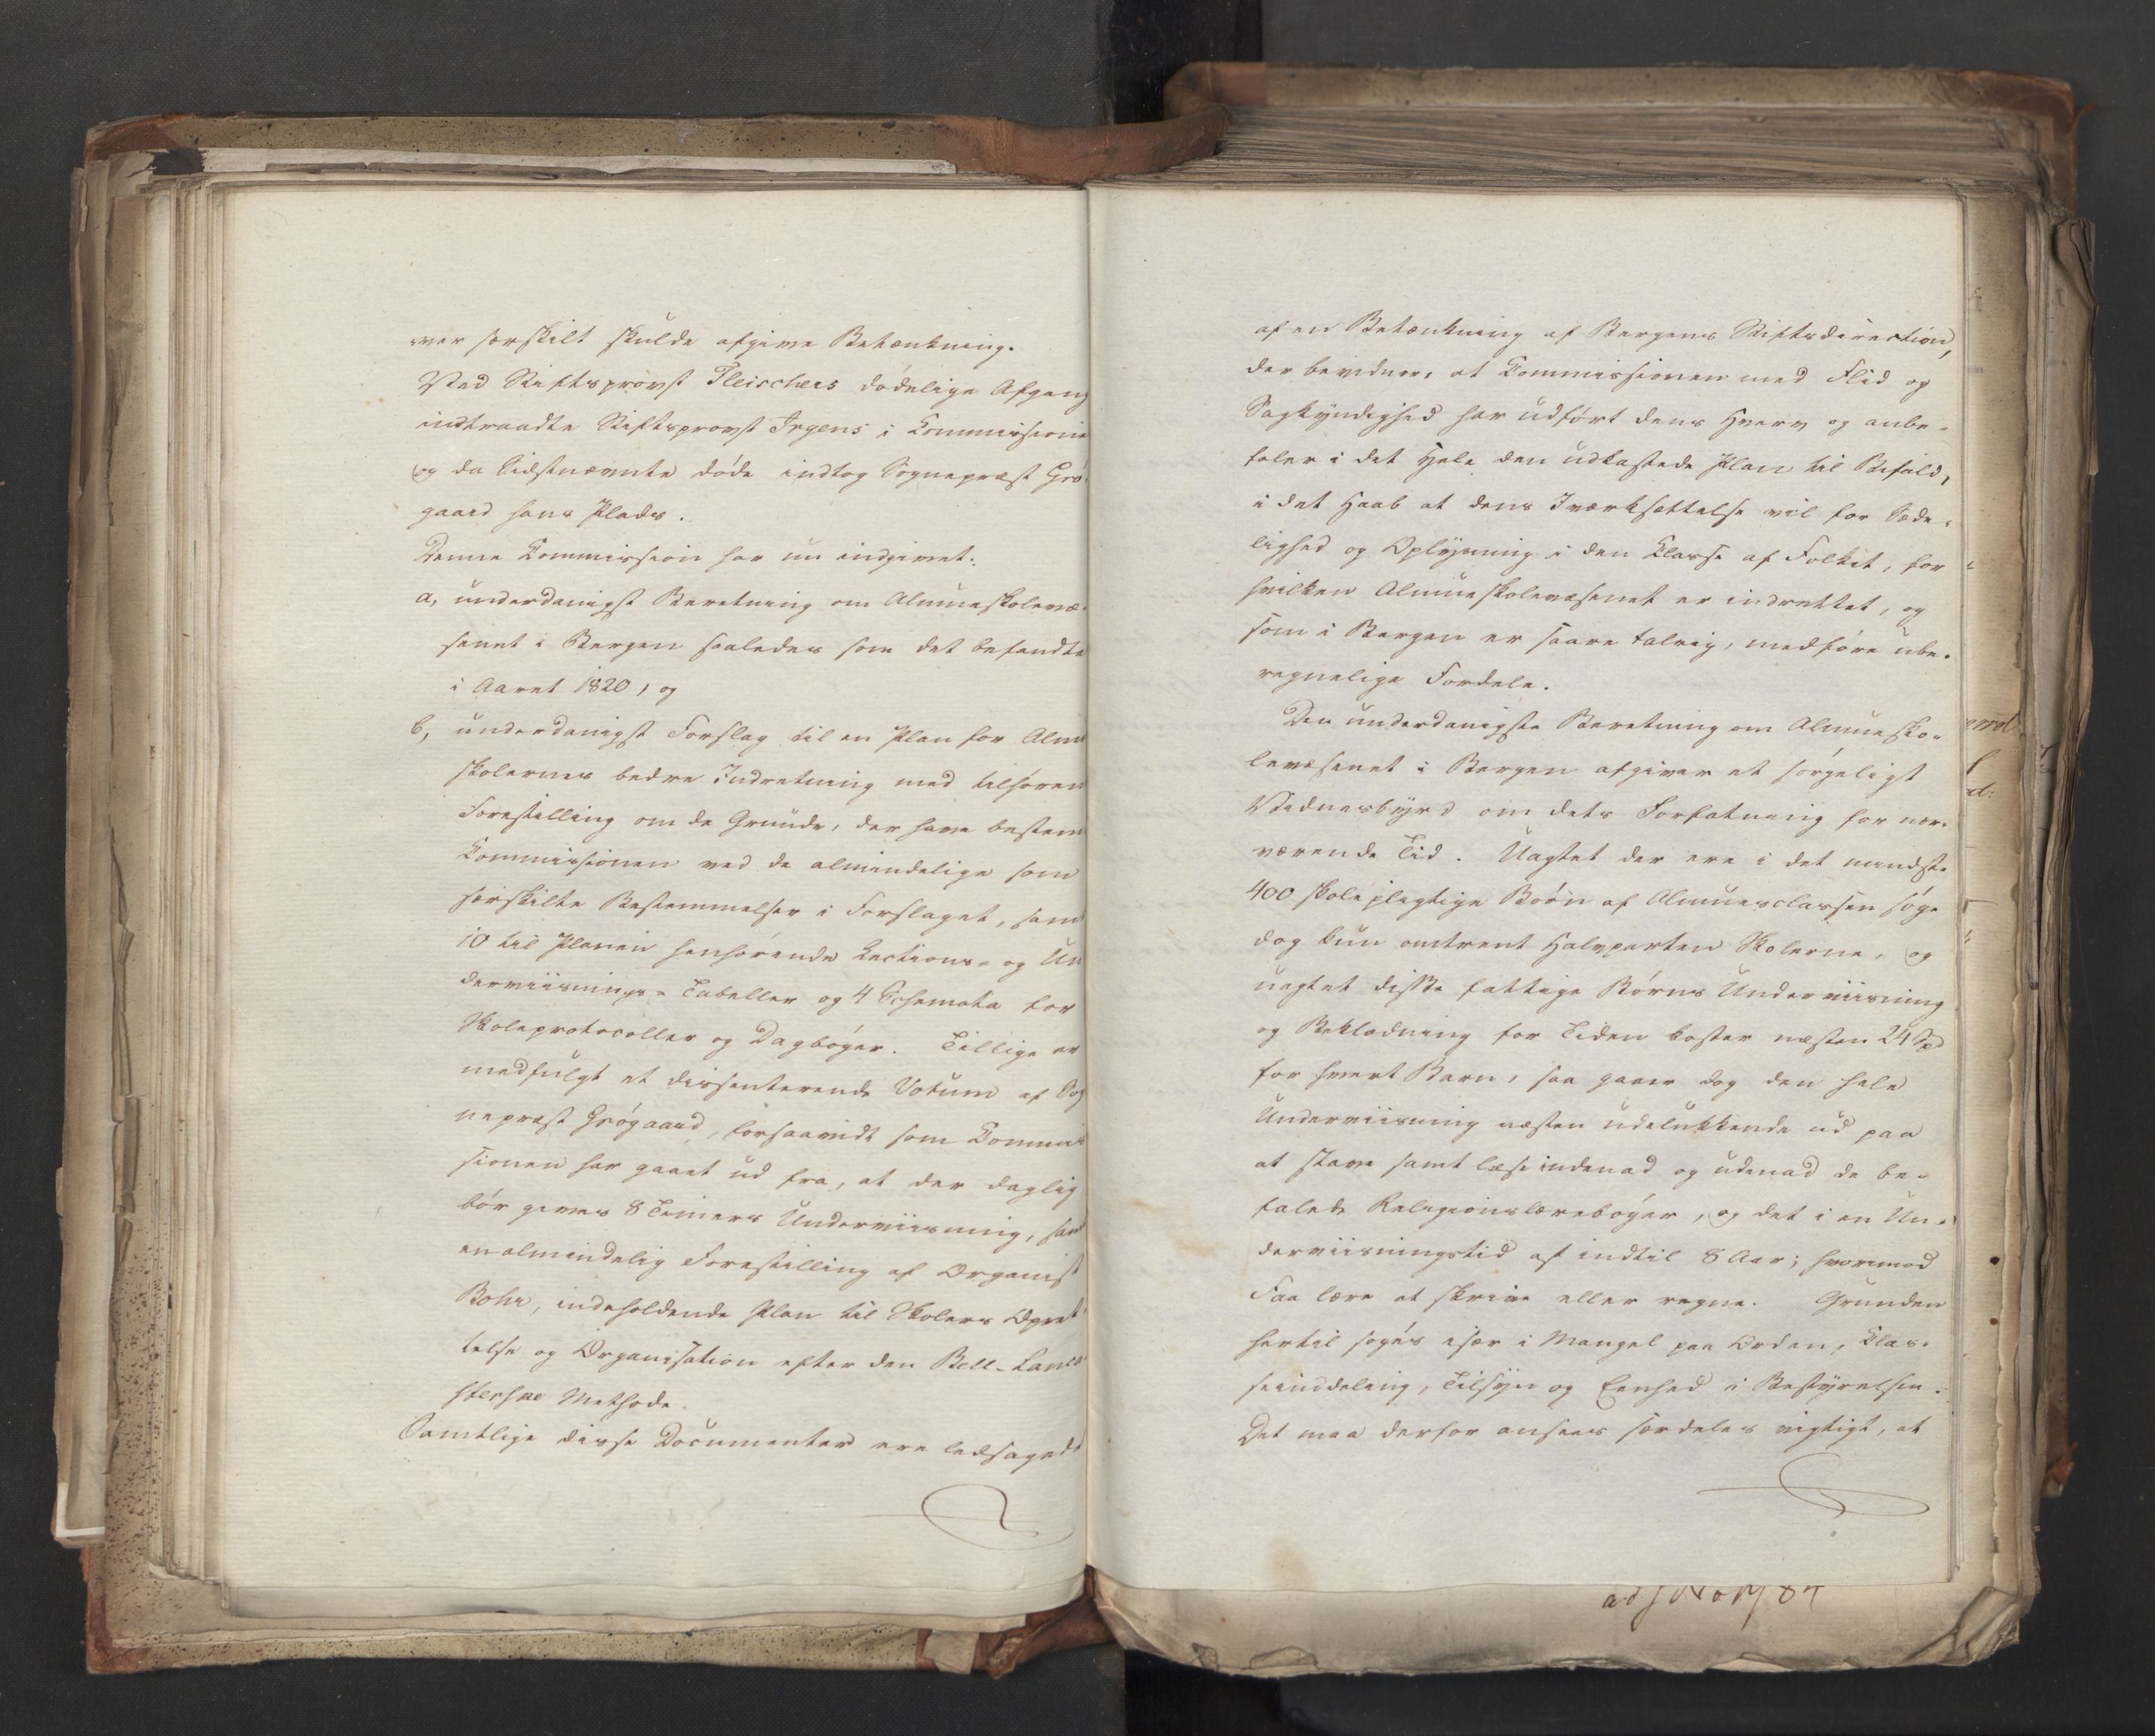 ver særskilt skulde afgive Betænkning.
Ved Stiftsprovst Fleischers dødelige Afgang
indtraadte Stiftsprovst Irgens i Commissione
og da Sidstnævnte døde indtog Sognepræst Grø
gaard hans Plads.
Denne Commission har nu indgivet:
a, underdanigst Beretning om Almueskolevæ-
senet i Bergen saaledes som det befandtes
i Aaret 1820, og
b, underdanigst Forslag til en Plan for Almu
skolernes bedre Indretning med tilhøren
Forestilling om de Grunde, der have bestem
Commissionen ved de almindelige som
særskilte Bestemmelser i Forslaget, samt
10 til Planen henhørende Lections- og Un
derviisnings-Tabeller og 4 Schemata for
Skoleprotocoller og Dagbøger. Tillige er
medfulgt et dissenterende Votum af Sog
nepræst Grøgaard, forsaavidt som Commis
sionen har gaaet ud fra, at der daglig
bør gives 8 Timers Underviisning, samt
en almindelig Forestilling af Organist
Bohr, indeholdende Plan til Skolers Opret-
telse og Organisation efter den Bell-Lanca
sterske Methode.
Samtlige disse Documenter ere ledsagede
af en Betænkning af Bergens Stiftsdirection,
der bevidner, at Commissionen med Flid og
Sagkyndighed har udført dens Hverv og anbe-
faler i det Hele den udkastede Plan til Bifald,
i det Haab at dens Iværksættelse vil for Sæde-
lighed og Oplysning i den Classe af Folket, for
hvilken Almueskolevæsenet er indrettet, og
som i Bergen er saare talrig, medføre ube-
regnelige Fordele.
Den underdanigste Beretning om Almuesko-
levæsenet i Bergen afgiver et sørgeligt
Vidnesbyrd om dets Forfatning for nær-
værende Tid. Uagtet der ere i det mindste
400 skolepligtige Børn af Almuesclassen søge
dog kun omtrent Halvparten Skolerne, og
uagtet disse fattige Børns Underviisning
og Beklædning for Tiden koster næsten 24 Spd
for hvert Barn, saa gaaer dog den hele
Underviisning næsten udelukkende ud paa
at stave samt læse indenad og udenad de be-
falede Religionslærebøger, og det i en Un-
derviisningstid af indtil 8 Aar; hvorimod
Faa lære at skrive eller regne. Grunden
hertil søges især i Mangel paa Orden, Clas-
seinddeling, Tilsyn og Eenhed i Bestyrelsen.
Det maa derfor ansees særdeles vigtigt, at